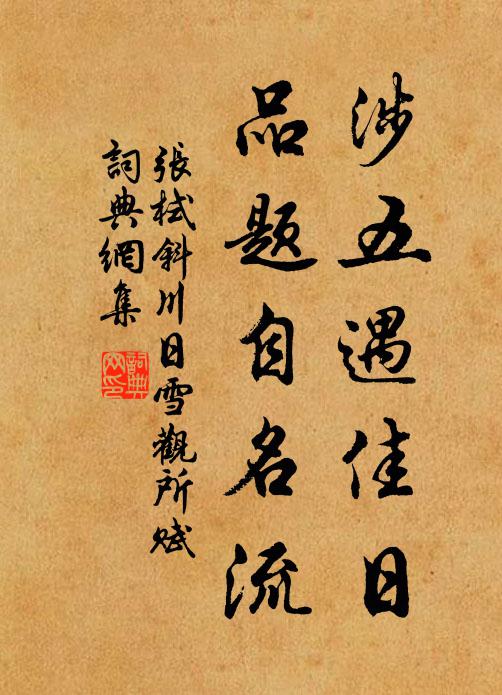 涉五遇佳日
品题自名流
張栻斜川日雪觀所賦
詞典網集
詞典网印